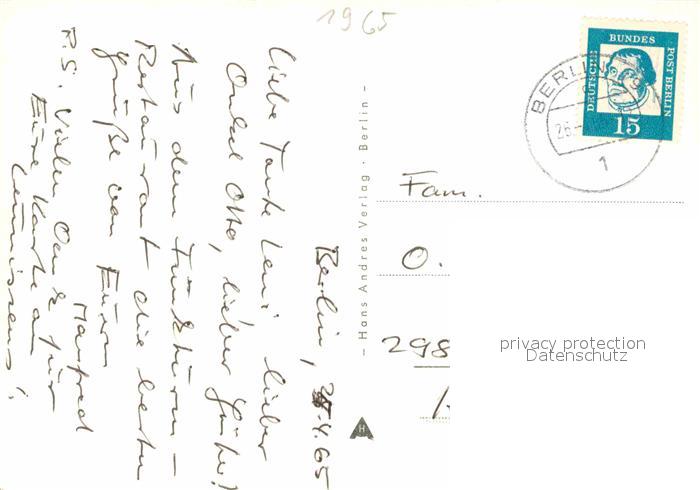 1965
Berlin, 25.4.65
Liebe Tante Leni, lieber
Onkel Otto, lieber Günter!
Aus dem Funkturm-
Restaurant die besten
Grüße von Eurem
Manfred
P.S. Vielen Dank für
Eure Karte an
DEUTSCHE BUNDESPOST BERLIN
15
BERLIN
1
Fam.
O.
298
– Hans Andres Verlag · Berlin –
H
privacy protection
Datenschutz